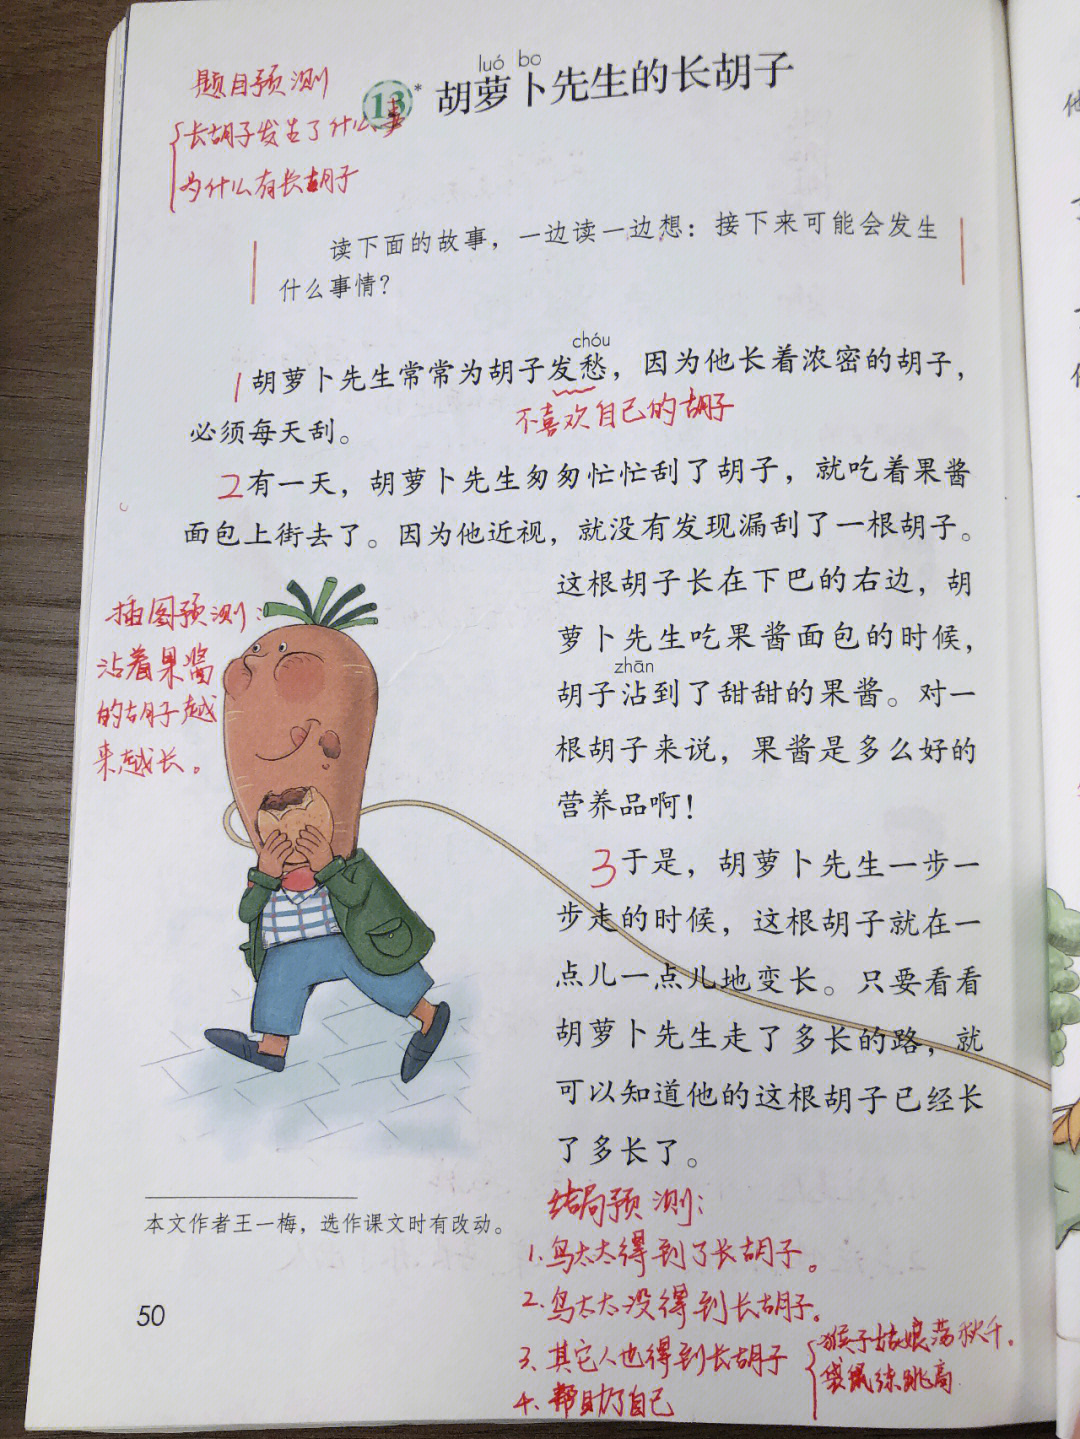 题目预测
luó bo
13* 胡萝卜先生的长胡子
长胡子发生了什么事
为什么有长胡子
读下面的故事，一边读一边想：接下来可能会发生
什么事情？
chóu
1 胡萝卜先生常常为胡子发愁，因为他长着浓密的胡子，
不喜欢自己的胡子
必须每天刮。
2 有一天，胡萝卜先生匆匆忙忙刮了胡子，就吃着果酱
面包上街去了。因为他近视，就没有发现漏刮了一根胡子。
这根胡子长在下巴的右边，胡
萝卜先生吃果酱面包的时候，
zhān
胡子沾到了甜甜的果酱。对一
根胡子来说，果酱是多么好的
营养品啊！
插图预测：
沾着果酱
的胡子越
来越长。
3 于是，胡萝卜先生一步一
步走的时候，这根胡子就在一
点儿一点儿地变长。只要看看
胡萝卜先生走了多长的路，就
可以知道他的这根胡子已经长
了多长了。
结局预测：
1. 鸟太太得到了长胡子。
2. 鸟太太没得到长胡子。
3. 其它人也得到长胡子
猴子姑娘荡秋千。
袋鼠练跳高
4. 帮助了自己
本文作者王一梅，选作课文时有改动。
50